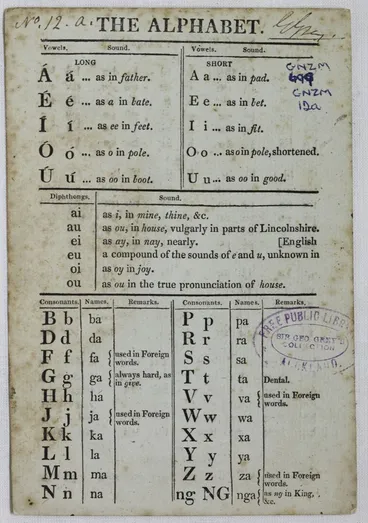 No. 12. a. THE ALPHABET.
Vowels. Sound. Vowels. Sound.
LONG SHORT
Á á ... as in father. A a ... as in pad.
É é ... as a in bate. E e ... as in bet.
Í í ... as ee in feet. I i ... as in fit.
Ó ó ... as o in pole. O o ... as o in pole, shortened.
Ú ú ... as oo in boot. U u ... as oo in good.
GNZM
GNZM
IDa
Diphthongs. Sound.
ai as i, in mine, thine, &c.
au as ou, in house, vulgarly in parts of Lincolnshire.
ei as ay, in nay, nearly. [English
eu a compound of the sounds of e and u, unknown in
oi as oy in joy.
ou as ou in the true pronunciation of house.
Consonants. Names. Remarks. Consonants. Names. Remarks.
B b ba P p pa
D d da R r ra
F f fa { used in Foreign words. S s sa
G g ga { always hard, as in give. T t ta Dental.
H h ha V v va { used in Foreign words.
J j ja { used in Foreign words. W w wa
K k ka X x xa
L l la Y y ya
M m ma Z z za { used in Foreign words.
N n na ng NG nga { as ng in King, &c.
FREE PUBLIC LIBRARY
SIR GEO. GREY'S
COLLECTION
AUCKLAND.